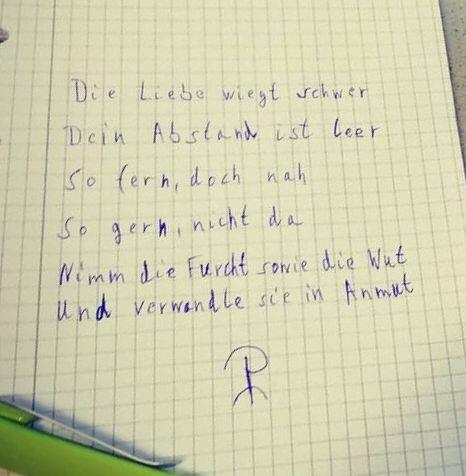 Die Liebe wiegt schwer
Dein Abstand ist leer
So fern, doch nah
So gern, nicht da
Nimm die Furcht sowie die Wut
Und verwandle sie in Anmut